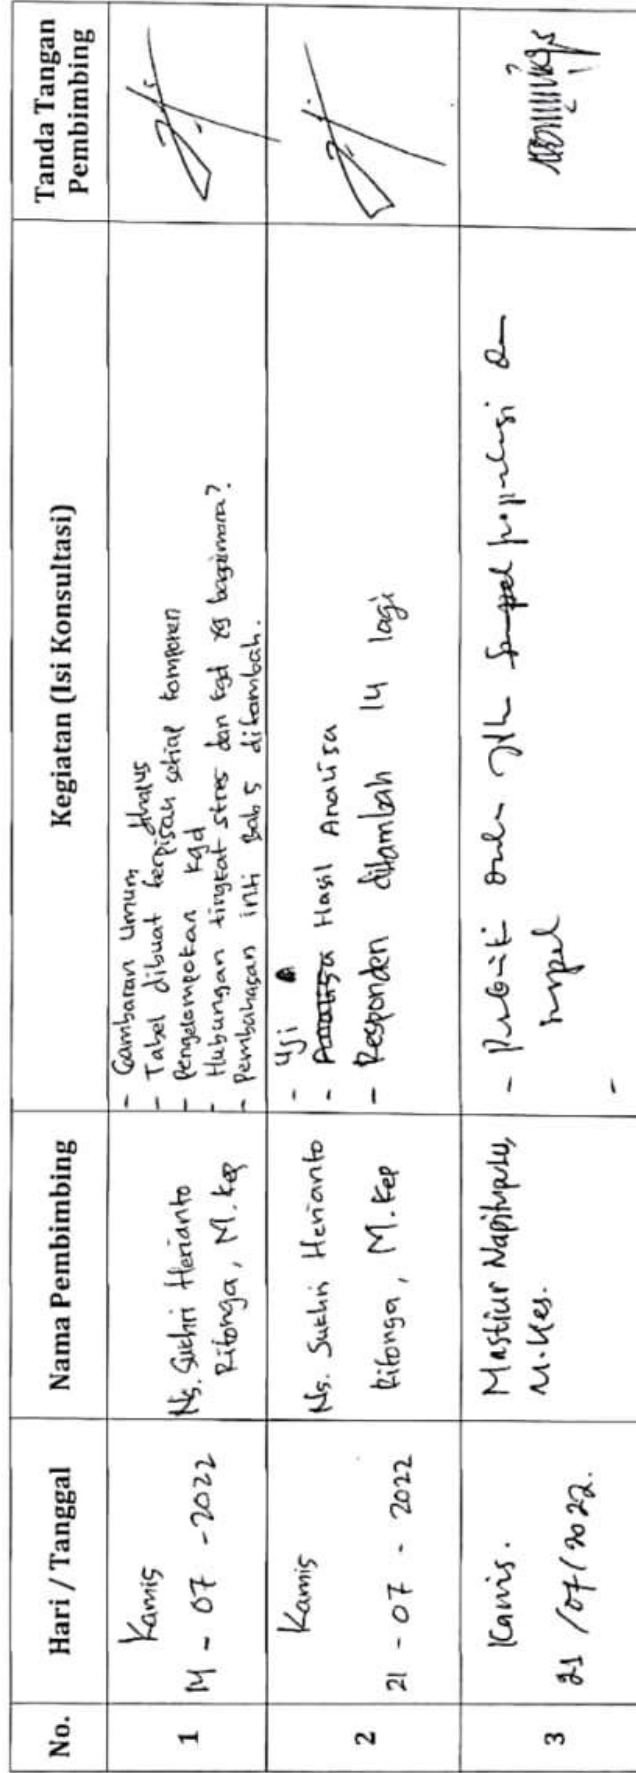 No.
Hari / Tanggal
Nama Pembimbing
Kegiatan (Isi Konsultasi)
Tanda Tangan
Pembimbing
1
Kamis
14 - 07 - 2022
Ns. Sukhri Herianto
Ritonga, M. Kep
- Gambaran Umum
- Tabel dibuat terpisah setiap komponen
- Pengelompokan kgd
- Hubungan tingkat stres dan kgd yg bagaimana?
- Pembahasan inti Bab 5 ditambah.
2
Kamis
21 - 07 - 2022
Ns. Sukhri Herianto
Ritonga, M. Kep
- Uji
- Hasil Analisa
- Responden ditambah 14 lagi
3
Kamis.
21 /07/2022.
Mastiur Napitupulu,
M.Kes.
- populasi
sampel
-